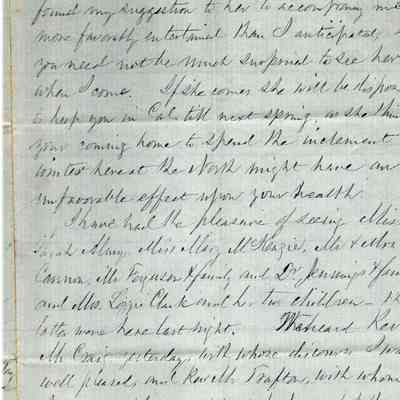 found my suggestion to her to accompany me
more favorably entertained than I anticipated, &
you need not be much surprised to see her
when I come. If she comes she will be dispos
to keep you in Cal. till next spring, as she thin
your coming home to spend the inclement
winter here at the North might have an
unfavorable effect upon your health.
I have had the pleasure of seeing Miss
Sarah Almy, Miss Mary McKenzie, Mr & Mrs
Cannon, Mr Ferguson & family and Dr Jennings & fam
and Mrs. Lizzie Clark and her two children – th
latter were here last night. We heard Rev
Mr Craig yesterday, with whose discourse I was
well pleased, and Rev Mr Trafton, with whom